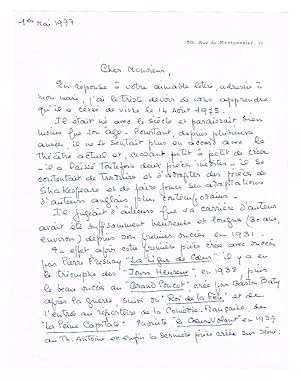 1er Mai 1977
30, Rue de Montpensier - 1er
Cher Monsieur,
En réponse à votre aimable lettre, adressée à
mon mari, j'ai le triste devoir de vous apprendre
qu'il a cessé de vivre le 14 Août 1975.
Il était né avec le siècle et paraissait bien
moins que son âge. Pourtant, depuis plusieurs
années, il ne se sentait plus en accord avec le
théâtre actuel et, cessant petit à petit de créer
- il a laissé toutefois deux pièces inédites - il se
contentait de traduire et d'adapter des pièces de
Shakespeare et de faire jouer ses adaptations
d'auteurs anglais plus contemporains.
Il jugeait d'ailleurs que sa carrière d'auteur
avait été suffisamment heureuse et longue (30 ans,
environ) depuis son premier succès en 1931.
En effet après cette première pièce créée avec succès
par Pierre Fresnay "La Ligne de Cœur" il y a eu
le triomphe des "Jours Heureux" en 1938, puis
le beau succès du "Grand Poucet" créé par Gaston Baty
après la guerre, suivi du "Roi de la Fête" et de
l'entrée au répertoire de la Comédie-Française, de
"La Peine Capitale". Ensuite "le Cœur Volant" en 1957
au Th. Antoine et enfin la dernière pièce créée sur scène: